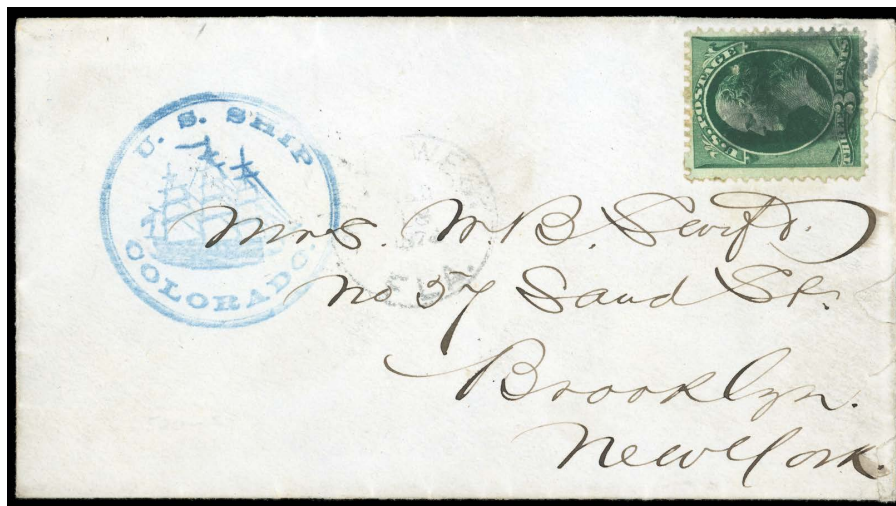 U. S. SHIP
COLORADO.
WEST
FLA.
U.S. POSTAGE
THREE 3 CENTS
Mrs. W. B. Swift.
No 57 Sand St.
Brooklyn.
New York.